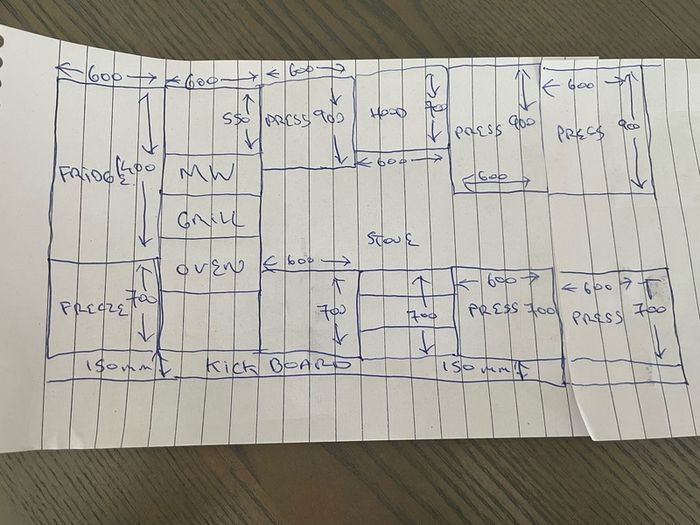 600 600 600
600
FRIDGE 1400
550
PRESS 900
HOOD 700
PRESS 900
PRESS 900
MW
600
600
GRILL
STOVE
OVEN
600
600
600
FREEZE 700
700
700
PRESS 700
PRESS 700
150mm
KICK BOARD
150mm